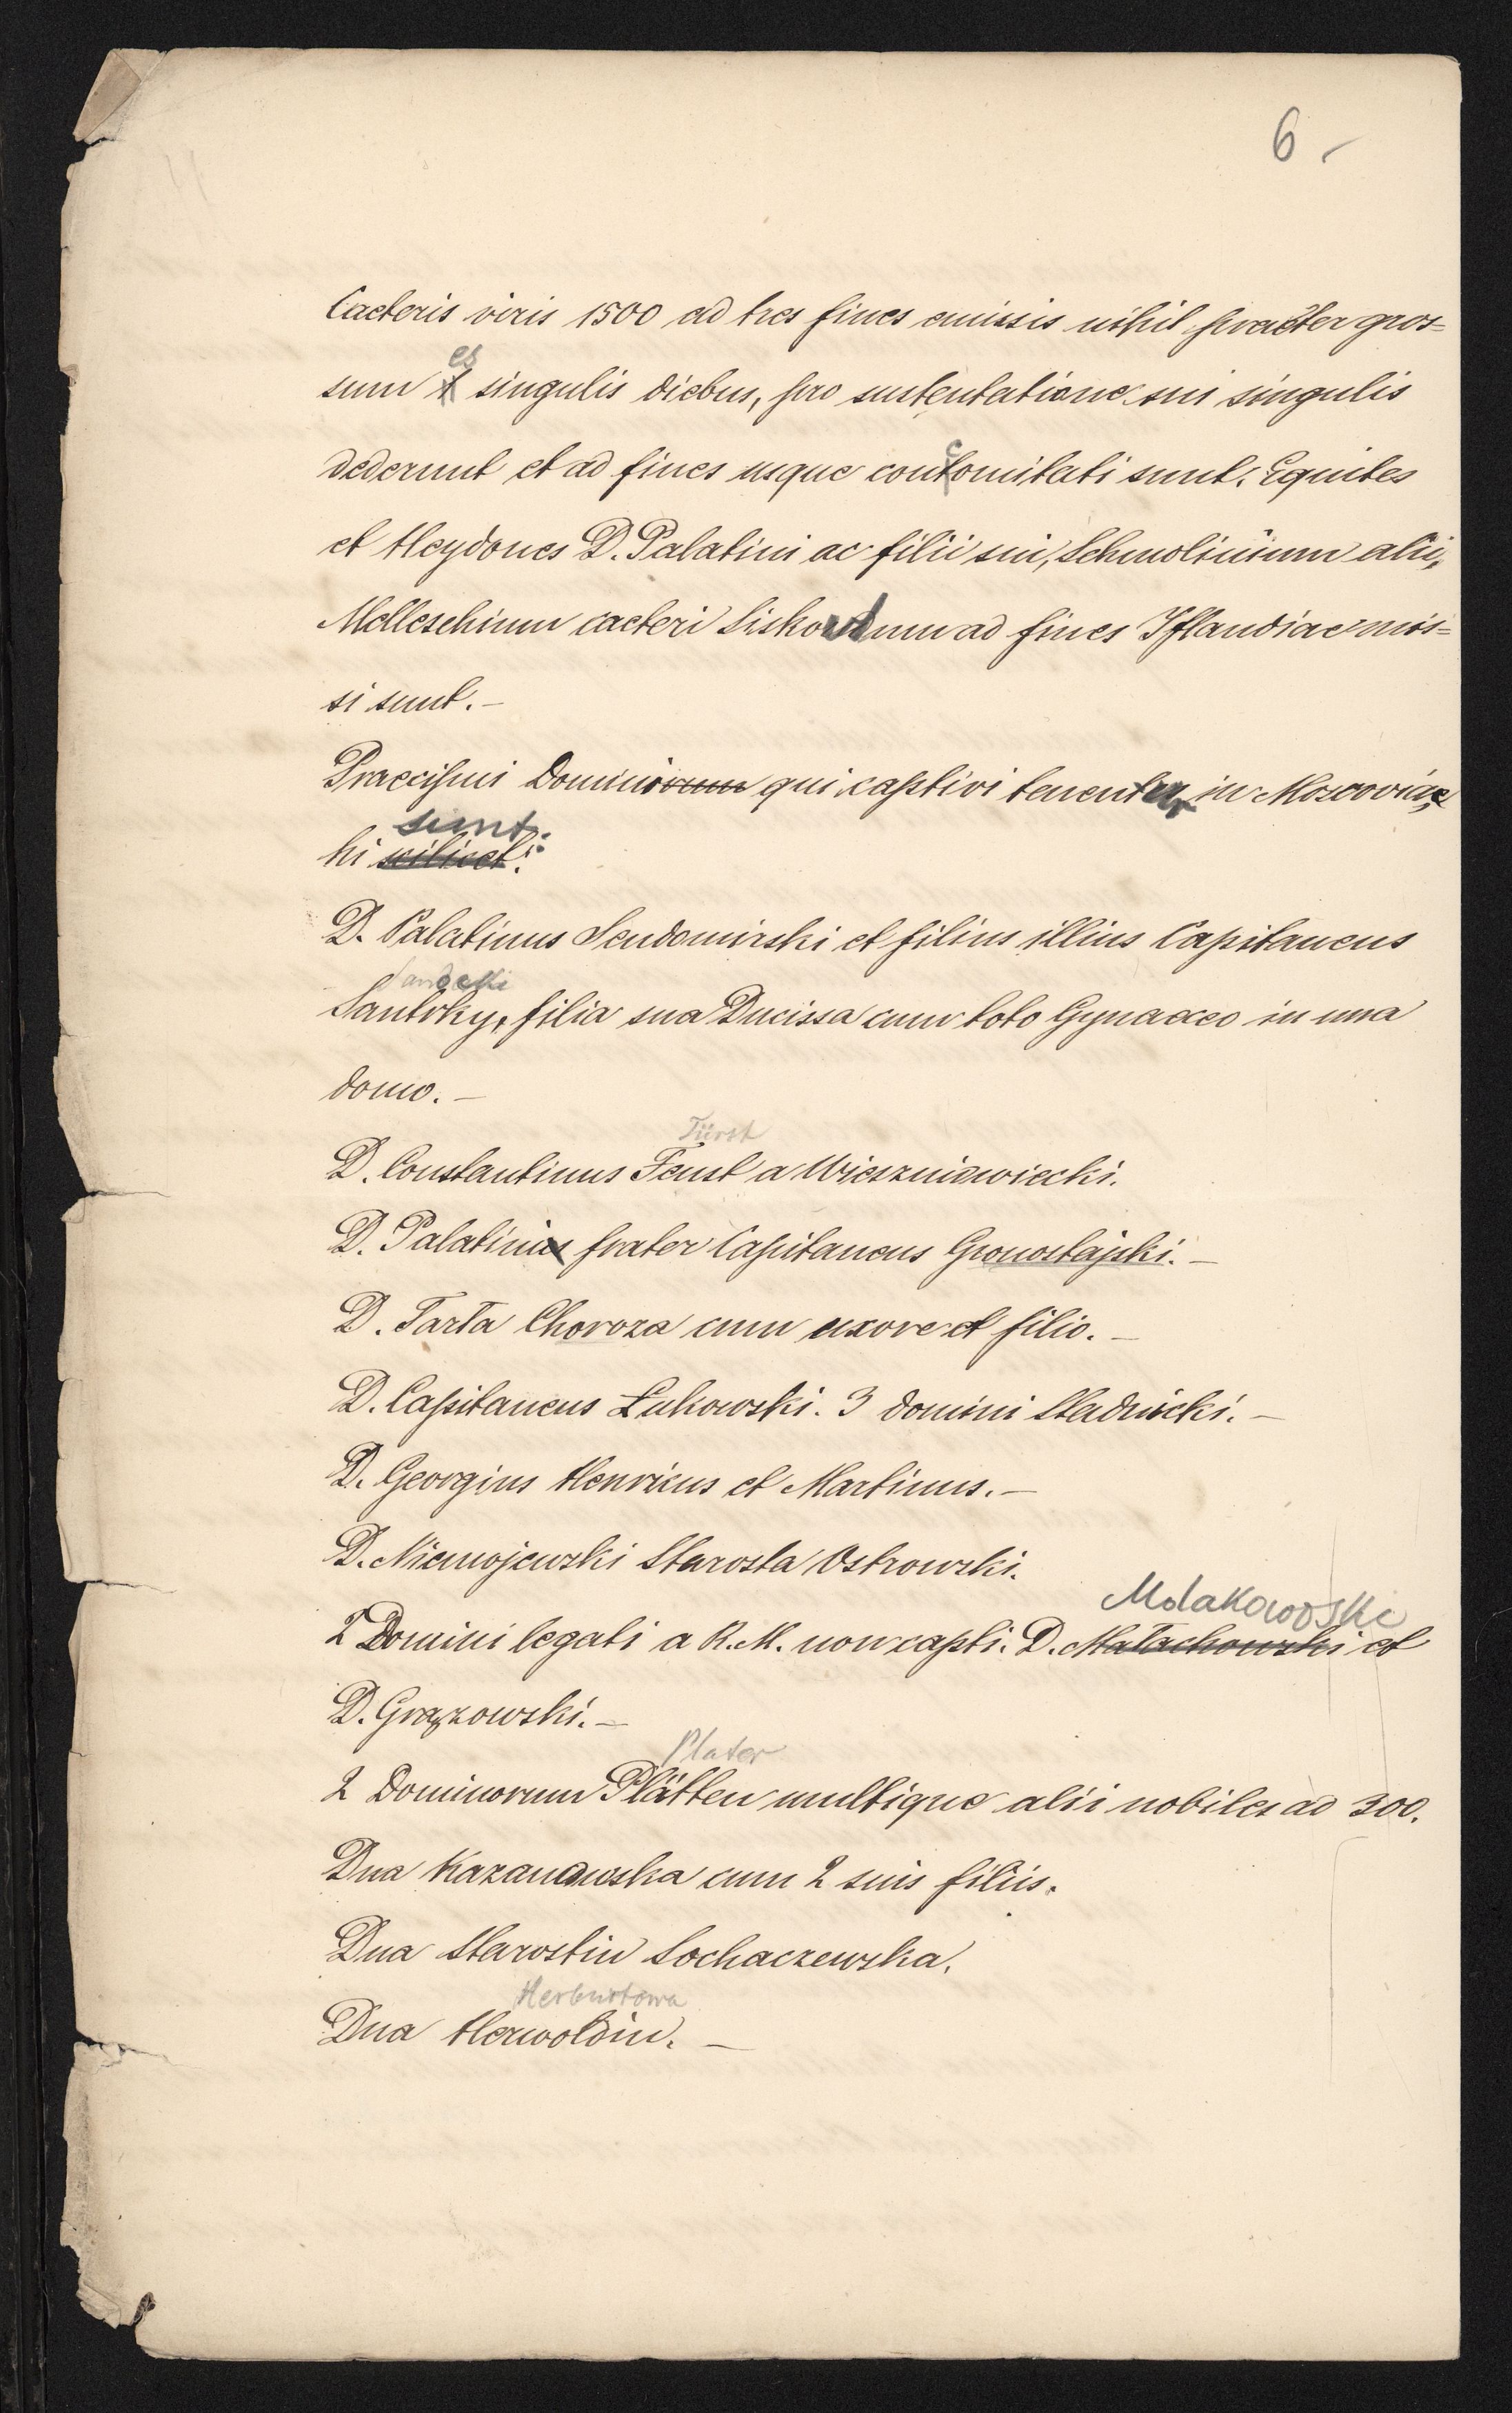 6.
Caeteris viris 1500 ad tres fines emissis nihil praeter gros=
es
sum singulis diebus, pro sustentatione sui singulis
dederunt et ad fines usque concomitati sunt. Equites
et Heydones D. Palatini ac filii sui, Schmolinium alii,
Melleschinum caeteri ad fines Iflandiae mis=
si sunt. —
Praecipui Dominiorum qui captivi tenentur in Moscovia,
sunt:
hi scilicet:
D. Palatinus Sendomirski et filius illius Capitaneus
Sandecki
Santrky, filia sua Ducissa cum toto Gynaeceo in una
domo. —
Fürst
D. Constantinus Feust a Wieszniewiecki.
D. Palatini frater Capitaneus Gronostajski. —
D. Tarła Choroza cum uxore et filio. —
D. Capitaneus Łukowski. 3 domini Stadnicki. —
D. Georgius Henricus et Martinus. —
D. Niemojewski Starosta Ostrowski.
Molakowske
2 Domini legati a R. M. non capti. D. Małachowski et
D. Grązowski. —
Plater
2 Dominorum Plätten multique alii nobiles ad 300.
Dna Kazanowska cum 2 suis filiis.
Dna Starostin Sochaczewska.
Herburtowa
Dna Herwoldin. —